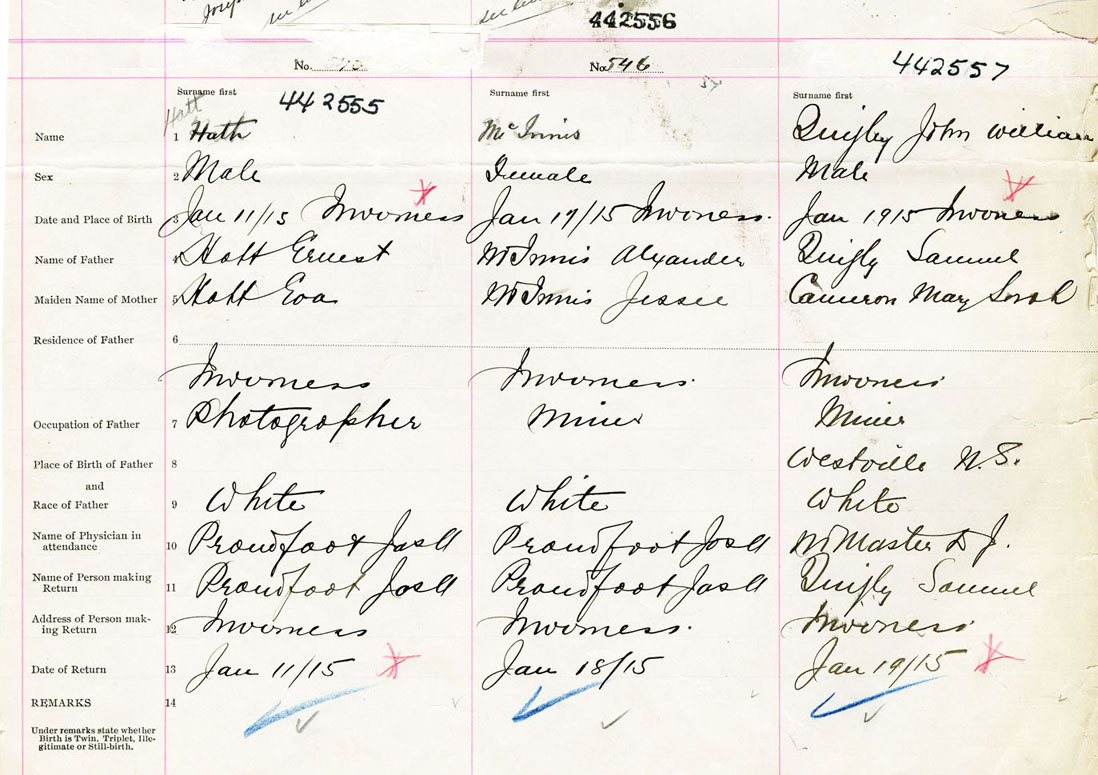 442556
No. No. 546 442557
Surname first Surname first Surname first
Hatt 442555
Name 1 Hath McInnis Quigley John William
Sex 2 Male Female Male
Date and Place of Birth 3 Jan 11/15 Inverness Jan 17/15 Inverness. Jan 1915 Inverness
Name of Father 4 Hatt Ernest McInnis Alexander Quigly Samuel
Maiden Name of Mother 5 Hatt Eva McInnis Jessie Cameron Mary Sarah
Residence of Father 6
Inverness Inverness. Inverness
Occupation of Father 7 Photographer Miner Miner
Place of Birth of Father 8 Westville N.S.
and
Race of Father 9 White White White
Name of Physician in
attendance 10 Proudfoot Jas A Proudfoot Jos A McMaster D J.
Name of Person making
Return 11 Proudfoot Jas A Proudfoot Jas A Quigly Samuel
Address of Person mak-
ing Return 12 Inverness Inverness. Inverness
Date of Return 13 Jan 11/15 Jan 18/15 Jan 19/15
REMARKS 14
Under remarks state whether
Birth is Twin, Triplet, Ille-
gitimate or Still-birth.